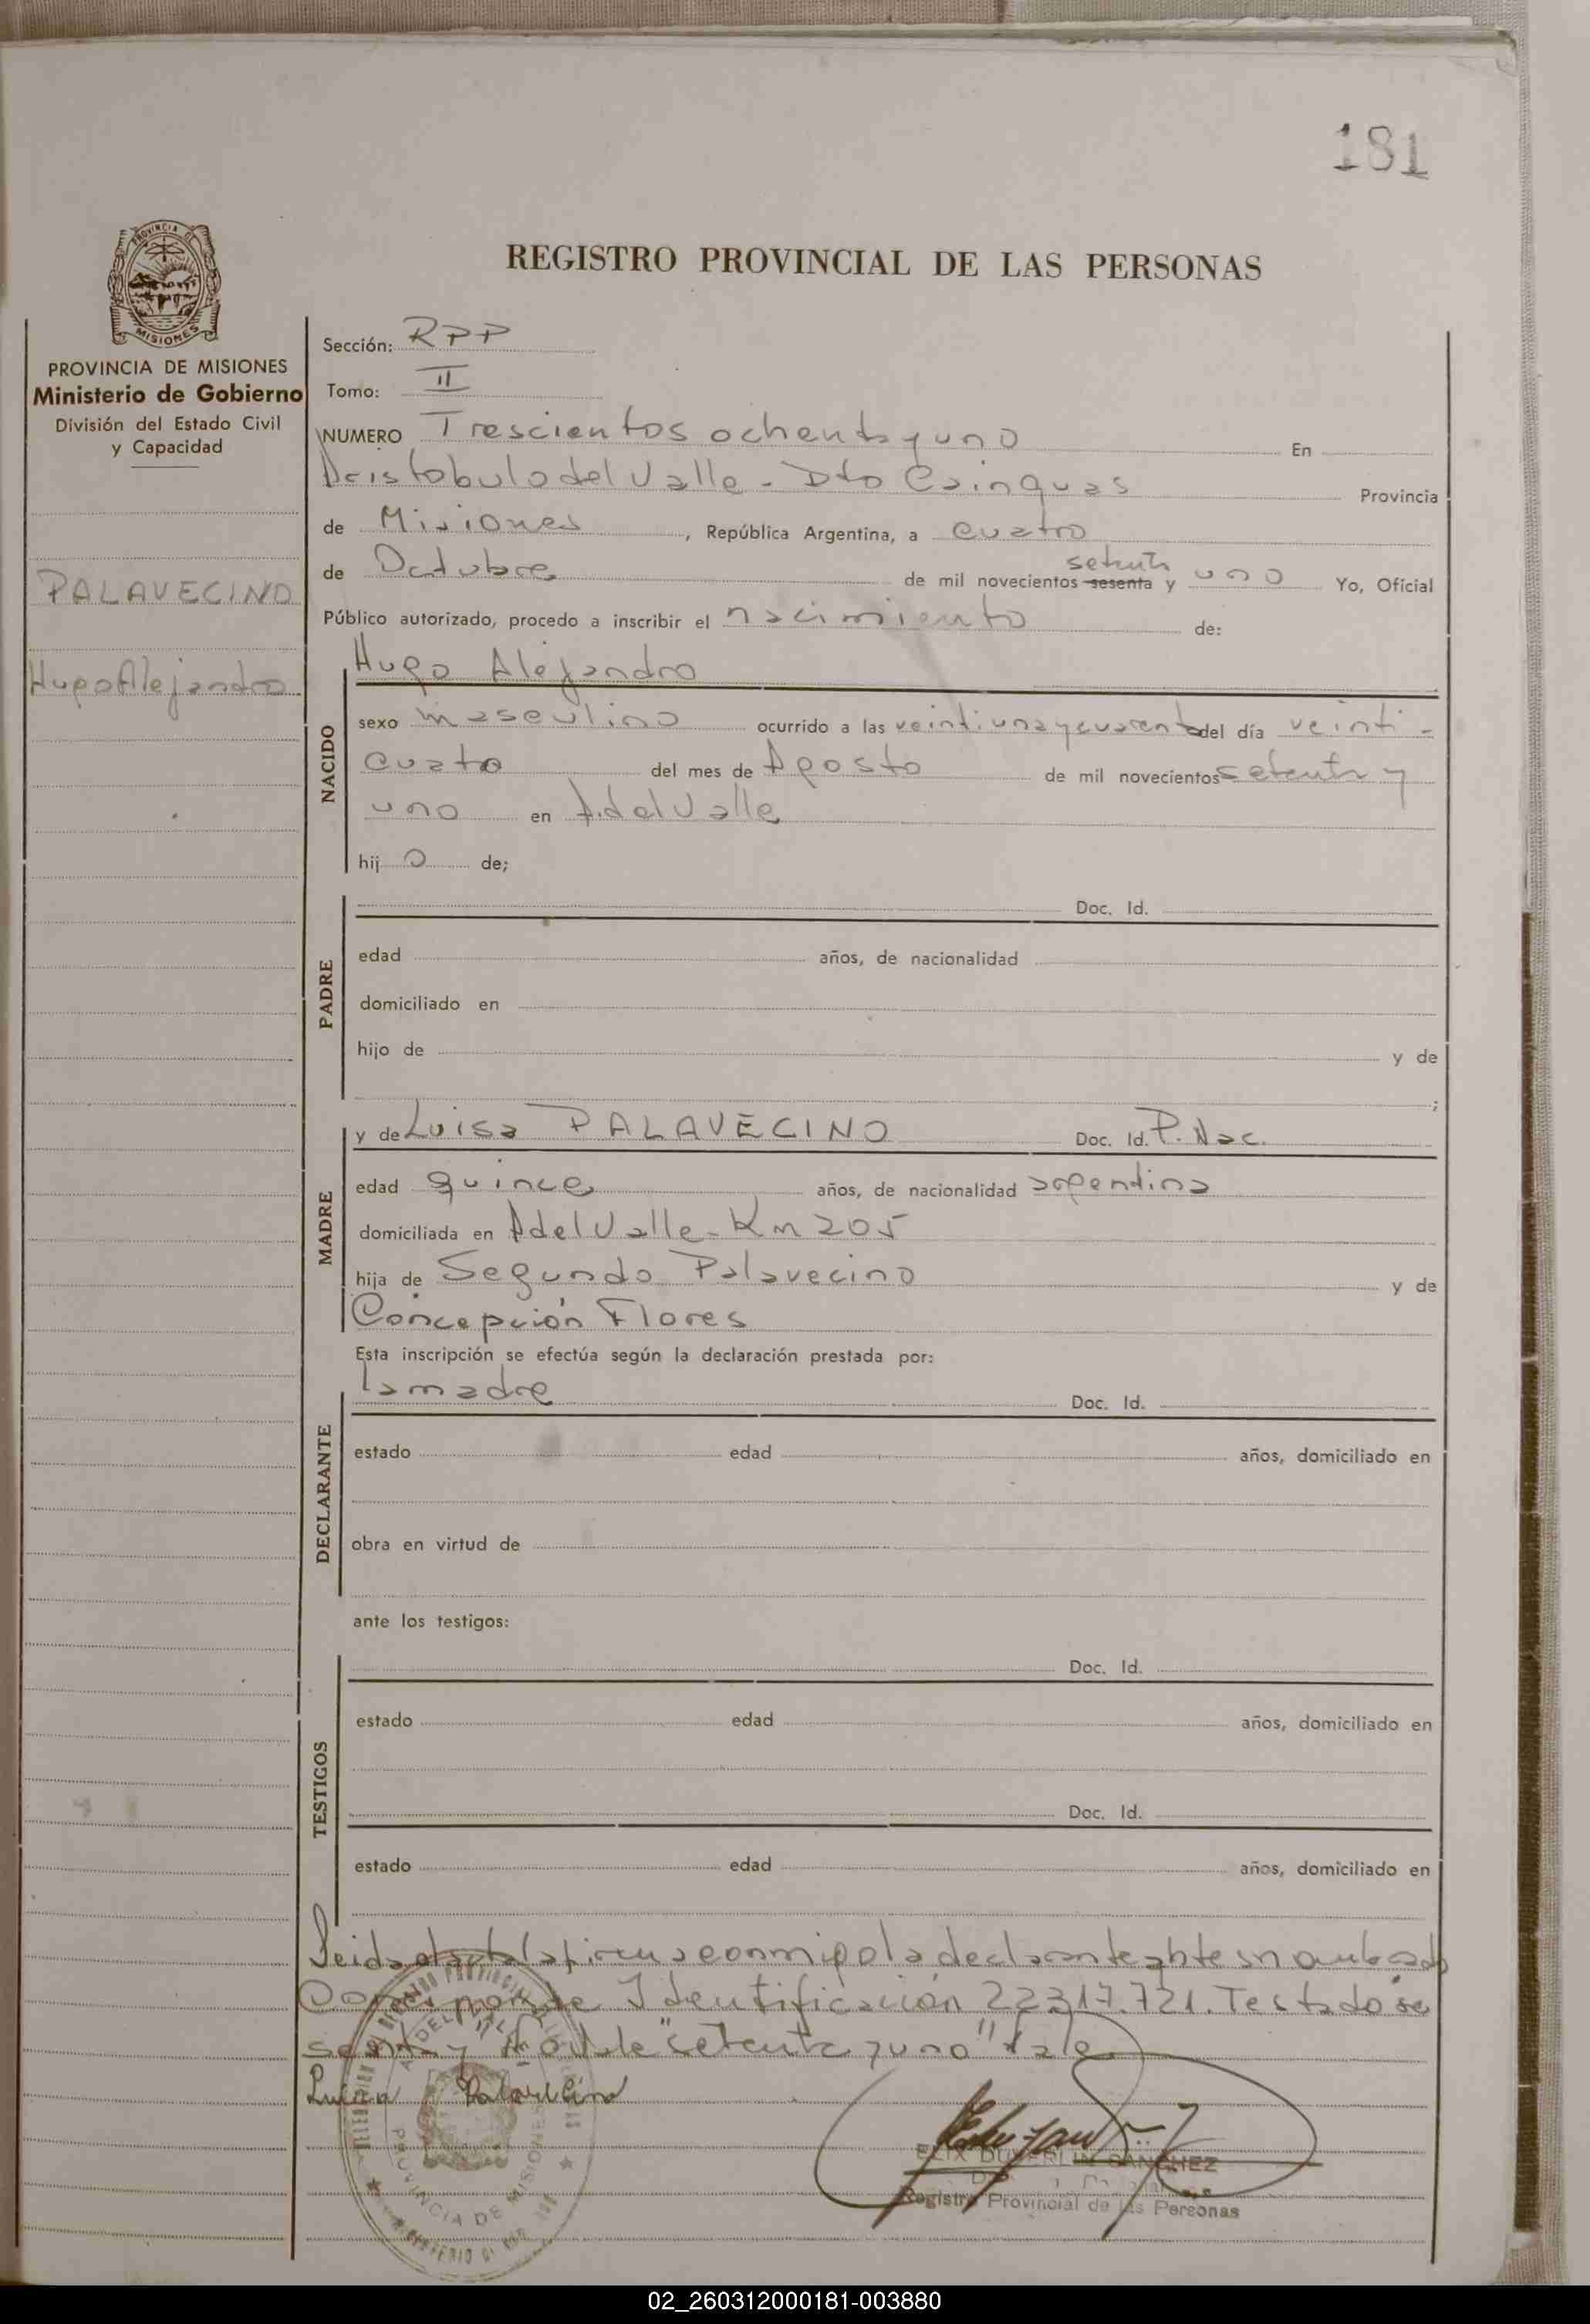 181
REGISTRO PROVINCIAL DE LAS PERSONAS
PROVINCIA DE MISIONES
Ministerio de Gobierno
División del Estado Civil
y Capacidad
PALAVECINO
Hugo Alejandro
Sección: RPP
Tomo: II
NUMERO Trescientos ochenta y uno En
Aristobulo del Valle - Dto Cainguas Provincia
de Misiones, República Argentina, a cuatro
de Octubre de mil novecientos sesenta setenta y uno Yo, Oficial
Público autorizado, procedo a inscribir el nacimiento de:
NACIDO
Hugo Alejandro
sexo masculino ocurrido a las veintiuna y cuarenta del día veinti-
cuatro del mes de Agosto de mil novecientos setenta y
uno en A. del Valle
hijo de;
PADRE
Doc. Id.
edad años, de nacionalidad
domiciliado en
hijo de y de
;
MADRE
y de Luisa PALAVECINO Doc. Id. P. Nac.
edad quince años, de nacionalidad argentina
domiciliada en A del Valle - Km 205
hija de Segundo Palavecino y de
Concepción Flores
Esta inscripción se efectúa según la declaración prestada por:
DECLARANTE
la madre Doc. Id.
estado edad años, domiciliado en
obra en virtud de
ante los testigos:
TESTIGOS
Doc. Id.
estado edad años, domiciliado en
Doc. Id.
estado edad años, domiciliado en
Leida el acta la firma conmigo la declarante
Corresponde Identificación 22317.721. Testado se
senta y "setenta y uno" Vale
Luisa Palavecino
SANCHEZ
Registro Provincial de las Personas
PROVINCIA DE MISIONES
02_260312000181-003880